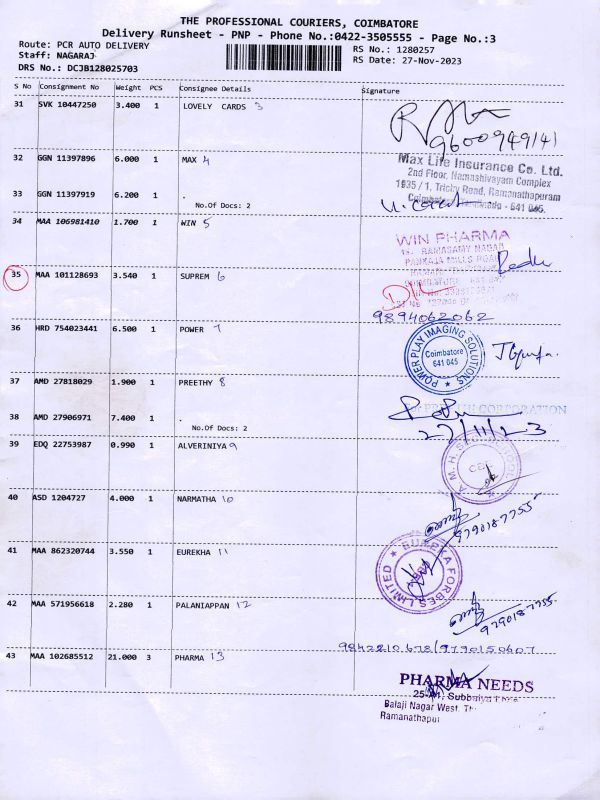 THE PROFESSIONAL COURIERS, COIMBATORE
Delivery Runsheet - PNP - Phone No.:0422-3505555 - Page No.:3
Route: PCR AUTO DELIVERY
RS No.: 1280257
Staff: NAGARAJ
RS Date: 27-Nov-2023
DRS No.: DCJB128025703
S No Consignment No Weight PCS Consignee Details Signature
31 SVK 10447250 3.400 1 LOVELY CARDS 3
9600949141
32 GGN 11397896 6.000 1 MAX 4
Max Life Insurance Co. Ltd.
2nd Floor, Namashivayam Complex
1935 / 1, Trichy Road, Ramanathapuram
33 GGN 11397919 6.200 1 .
No.Of Docs: 2
641 045.
34 MAA 106981410 1.700 1 WIN 5
WIN PHARMA
35 MAA 101128693 3.540 1 SUPREM 6
9894062062
36 HRD 754023441 6.500 1 POWER 7
POWER PLAY IMAGING SOLUTIONS
Coimbatore
641 045
37 AMD 27818029 1.900 1 PREETHY 8
38 AMD 27906971 7.400 1 .
No.Of Docs: 2
CORPORATION
27/11/23
39 EDQ 22753987 0.990 1 ALVERINIYA 9
40 ASD 1204727 4.000 1 NARMATHA 10
9790187755
41 MAA 862320744 3.550 1 EUREKHA 11
EUREKA FORBES LIMITED
42 MAA 571956618 2.280 1 PALANIAPPAN 12
9790187755
9842210678/9790150607
43 MAA 102685512 21.000 3 PHARMA 13
PHARMA NEEDS
Balaji Nagar West,
Ramanathapur